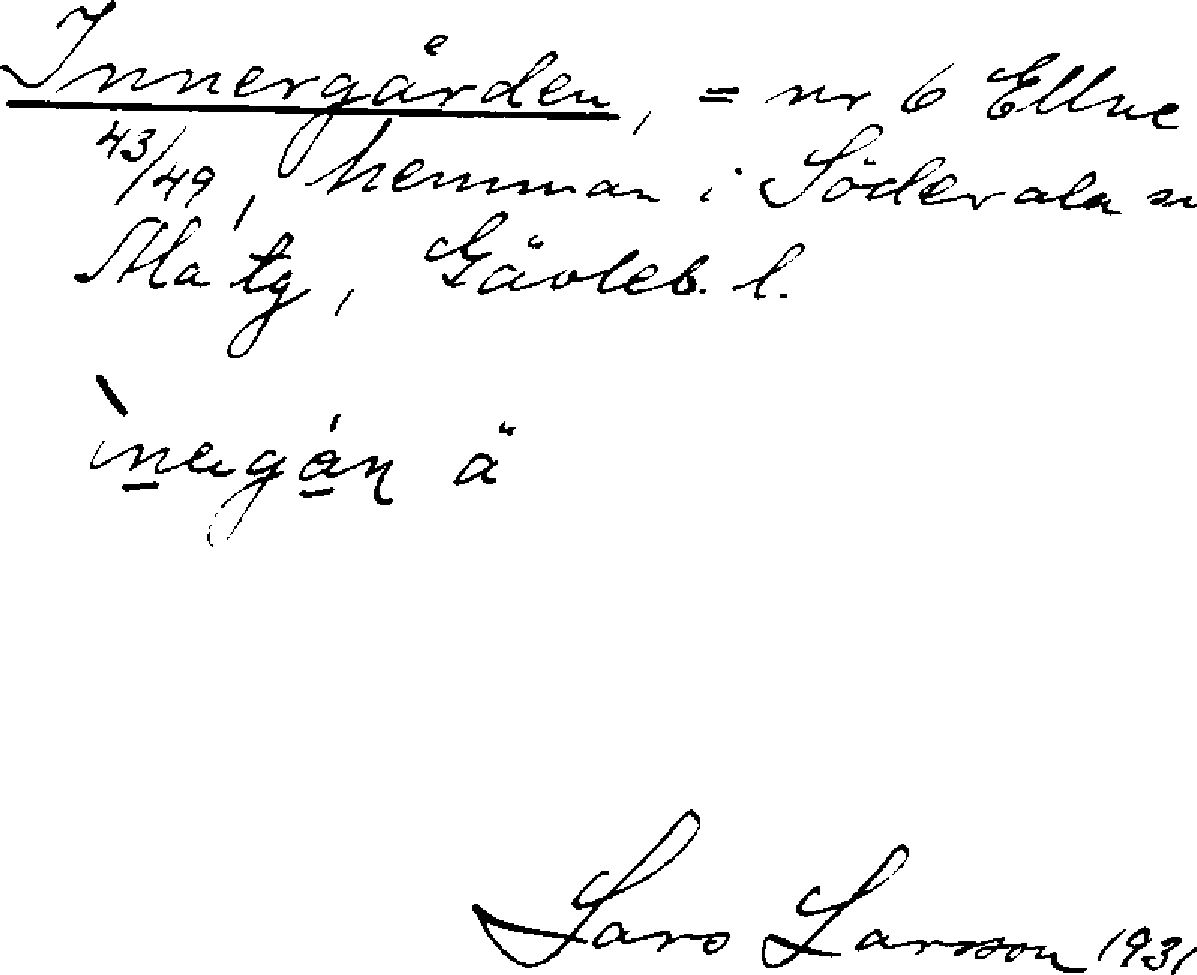 Innergården, = nr 6 Ellne
43/49, hemman i Söderala sn
Ala tg, Gävleb. l.
ä
Lars Larsson 1931